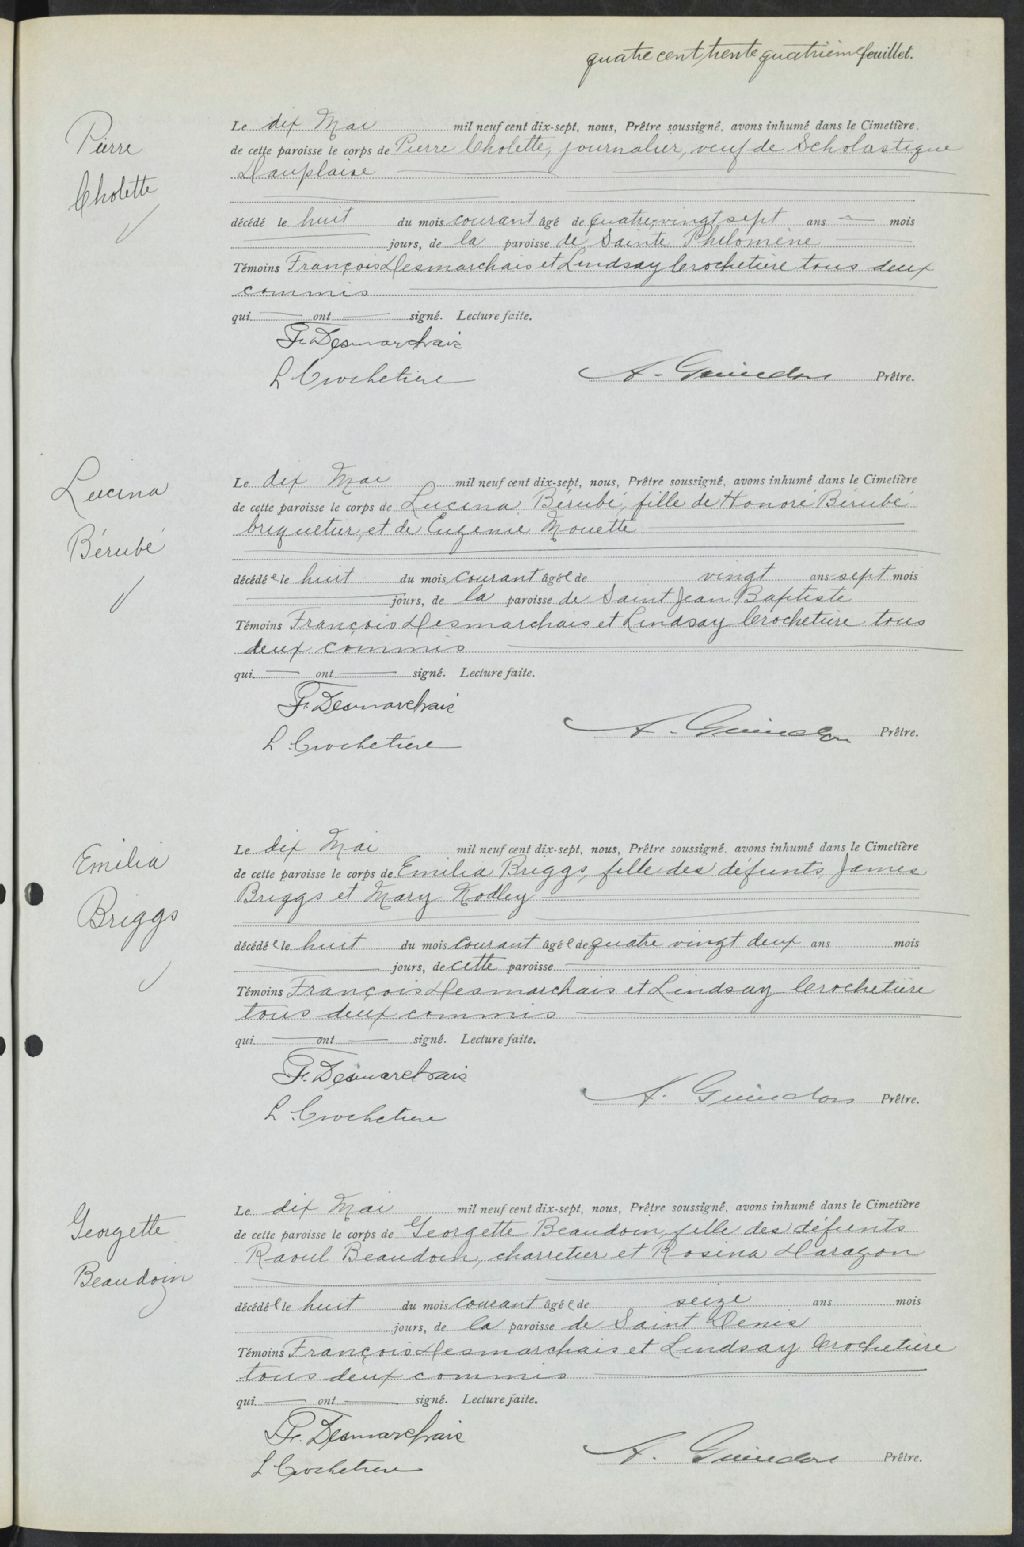 quatre cent trente quatrième feuillet.
Pierre
Cholette
Le dix Mai mil neuf cent dix-sept, nous, Prêtre soussigné, avons inhumé dans le Cimetière
de cette paroisse le corps de Pierre Cholette, journalier, veuf de Scholastique
Dauplaise
décédé le huit du mois courant âgé de quatre-vingt sept ans mois
jours, de la paroisse de Sainte Philomène
Témoins François Desmarchais et Lindsay Crochetière tous deux
commis
qui ont signé. Lecture faite.
F. Desmarchais
L Crochetière
A. Guindon Prêtre.
Lucina
Bérubé
Le dix Mai mil neuf cent dix-sept, nous, Prêtre soussigné, avons inhumé dans le Cimetière
de cette paroisse le corps de Lucina Bérubé, fille de Honoré Bérubé
briquetier, et de Eugenie Mouette
décédée le huit du mois courant âgée de vingt ans sept mois
jours, de la paroisse de Saint Jean Baptiste
Témoins François Desmarchais et Lindsay Crochetière tous
deux commis
qui ont signé. Lecture faite.
F. Desmarchais
L. Crochetiere
A. Guindon Prêtre.
Emilia
Briggs
Le dix Mai mil neuf cent dix-sept, nous, Prêtre soussigné, avons inhumé dans le Cimetière
de cette paroisse le corps de Emilia Briggs, fille des défunts James
Briggs et Mary Rodley
décédée le huit du mois courant âgée de quatre vingt deux ans mois
jours, de cette paroisse
Témoins François Desmarchais et Lindsay Crochetière
tous deux commis
qui ont signé. Lecture faite.
F. Desmarchais
L. Crochetiere
A. Guindon Prêtre.
Georgette
Beaudoin
Le dix Mai mil neuf cent dix-sept, nous, Prêtre soussigné, avons inhumé dans le Cimetière
de cette paroisse le corps de Georgette Beaudoin, fille des défunts
Raoul Beaudoin, charretier et Rosina Daragon
décédée le huit du mois courant âgée de seize ans mois
jours, de la paroisse de Saint Denis
Témoins François Desmarchais et Lindsay Crochetière
tous deux commis
qui ont signé. Lecture faite.
F. Desmarchais
L Crochetiere
A. Guindon Prêtre.